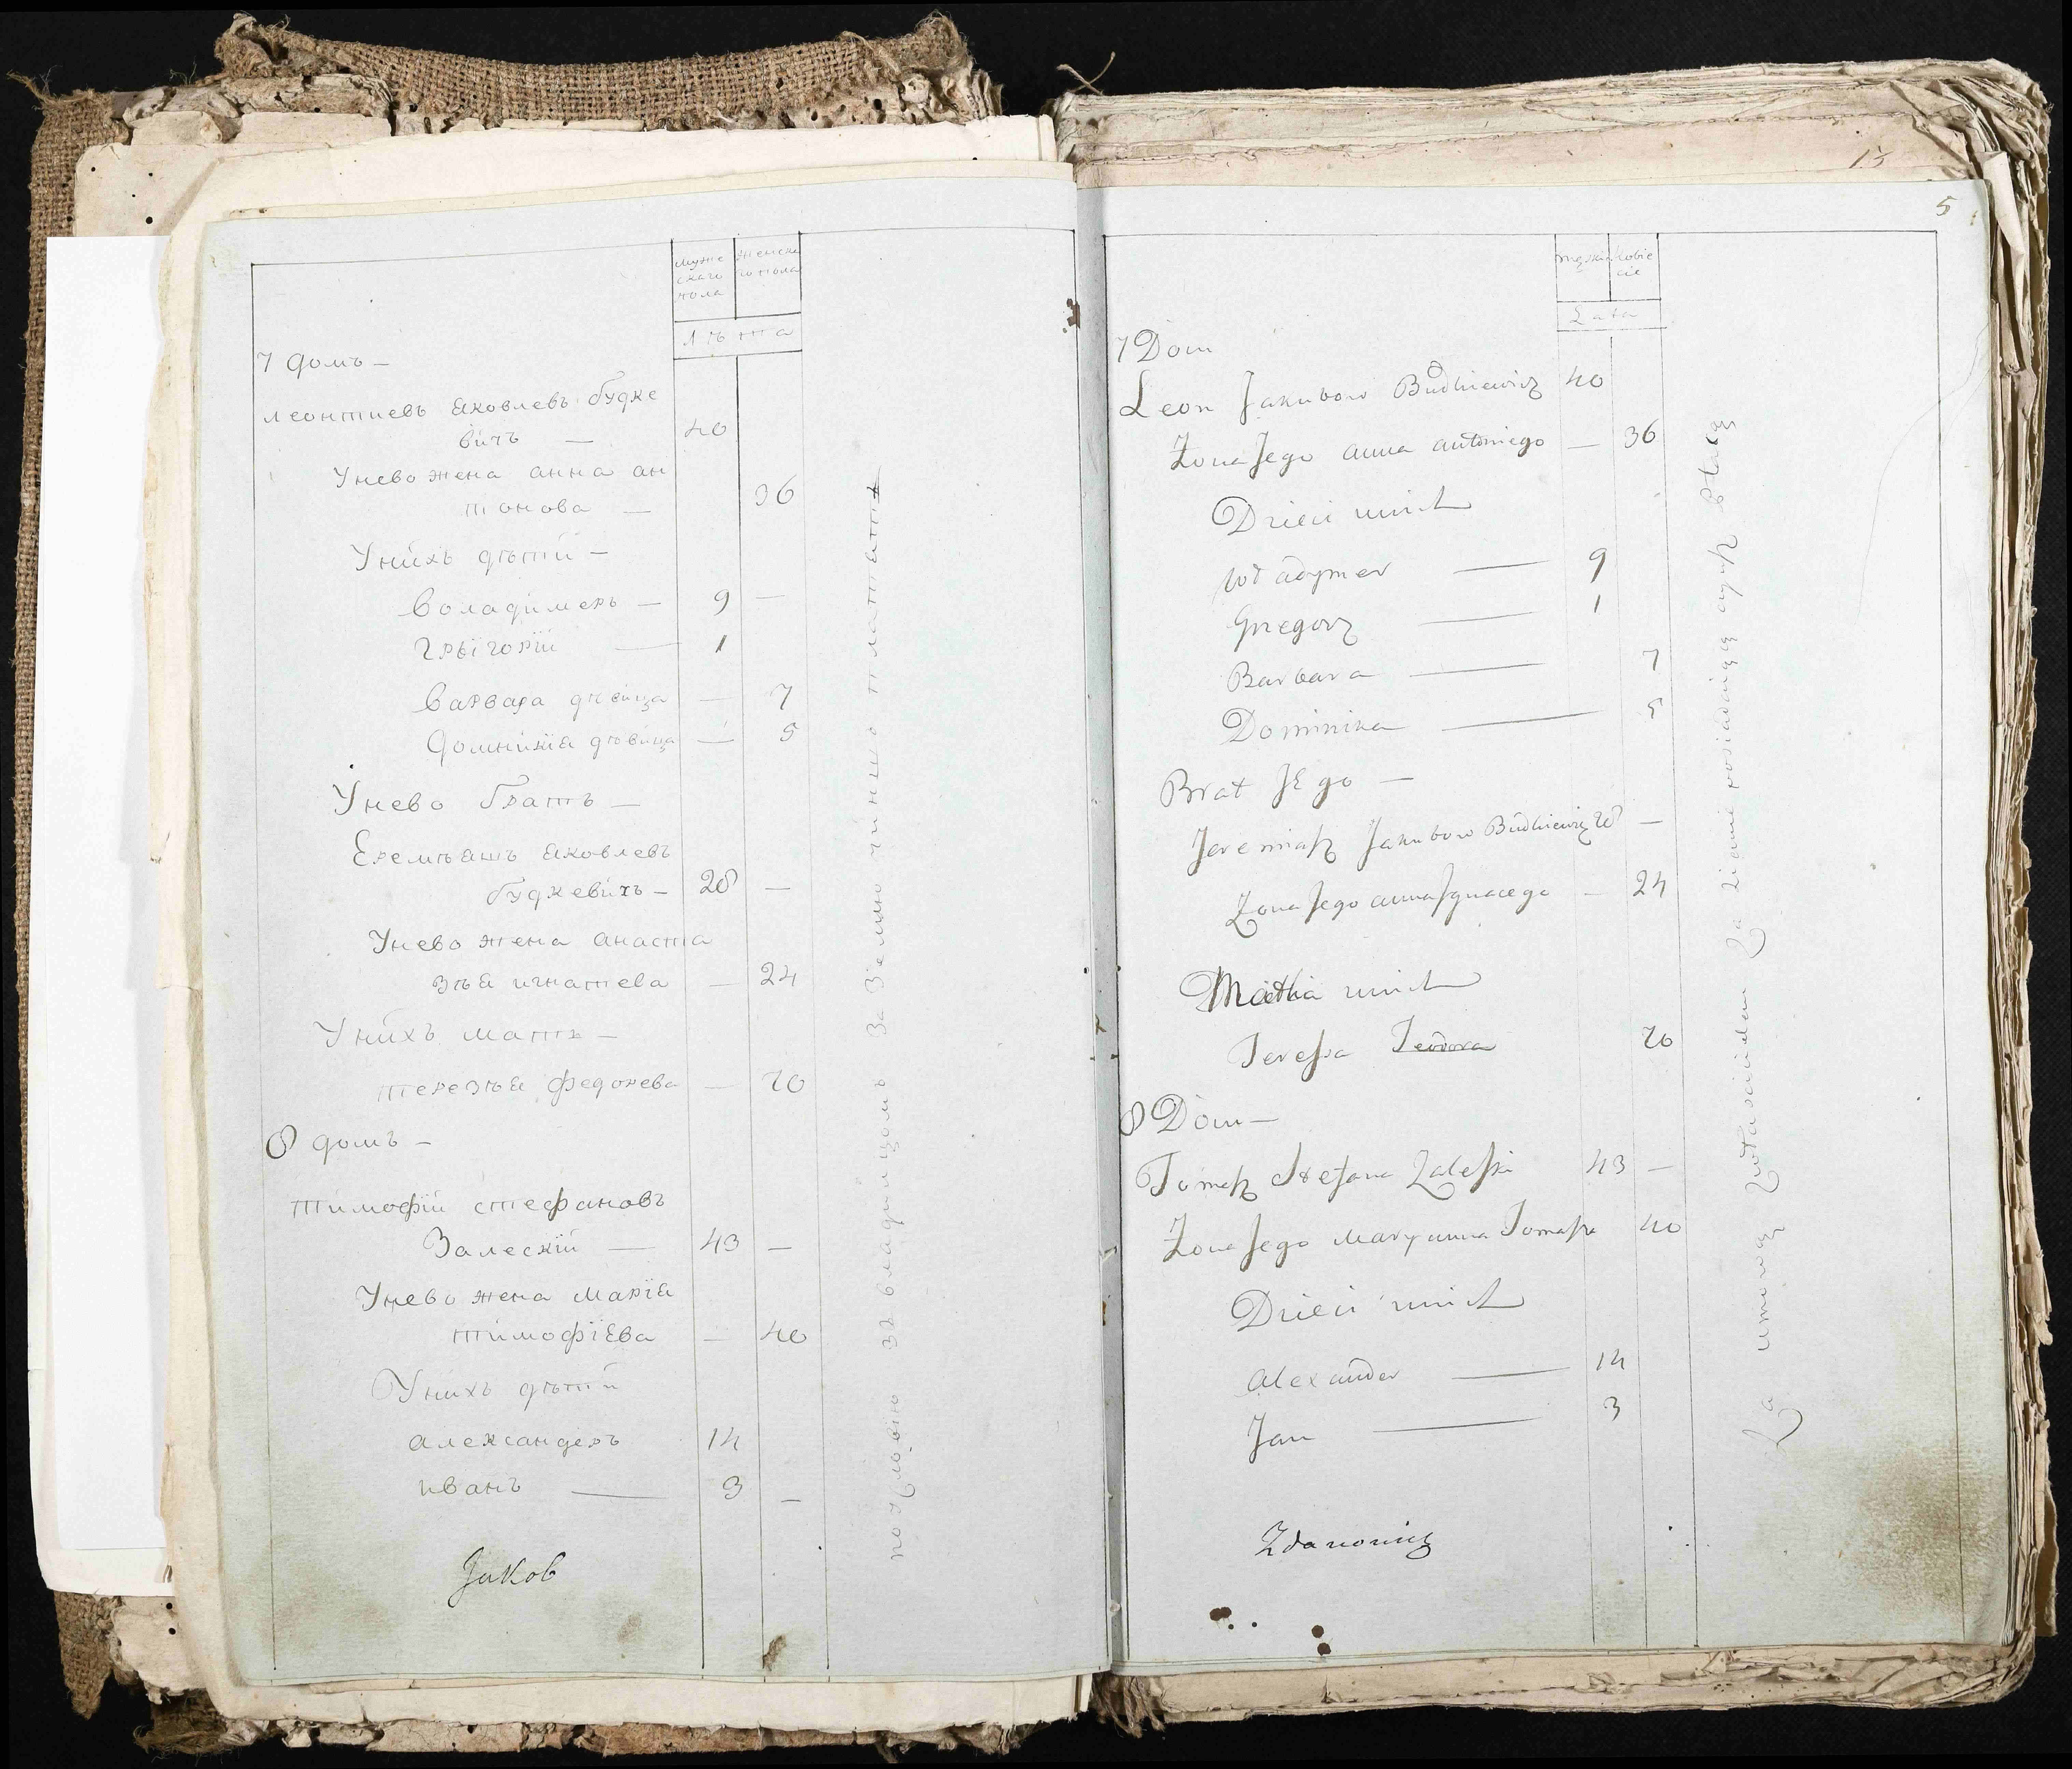 муже
скаго
пола
женска
го пола
лѣта
7 домъ —
леонтиевъ яковлевъ будке
вичъ — 40
Унево жена анна ан
тонова — 36
Унихъ дѣтий —
Воладимеръ — 9 —
Грыгорїй — 1
Варвара дѣвица — 7
Домникїя дѣвица — 5
Унево братъ —
Еремѣашъ яковлевъ
будкевичъ — 28 —
Унево жена анаста
зѣя игнатева — 24
Унихъ мать —
терезѣя федорева — 70
8 домъ —
тимофїй стефановъ
Залескїй — 43 —
Унево жена марїя
тимофїева — 40
Унихъ дѣтий
александеръ 14
иванъ — 3 —
Jakob
за владилцомъ за землю чиншо платять
13
5
męzkie
kobie
cie
Lata
7 Dom
Leon Jakubow Budkiewicz 40
Żona Jego anna antoniego — 36
Dzieci unich
Władymer — 9
Gregorz — 1
Barbara — 7
Dominika — 5
Brat JEgo —
Jeremiasz Jakubow Budkiewicz 28 —
Żona Jego anna Jgnacego — 24
Matka unich
Teressa Teodora 70
8 Dom —
Tomasz Stefana Zaleski 43 —
Żona Jego Maryanna Tomasza 40
Dzieci unich
Alexander — 14
Jan — 3
Zdanowicz
Za umową Zwłascicielem Za ziemie posiadaiącą czynsz Płacą